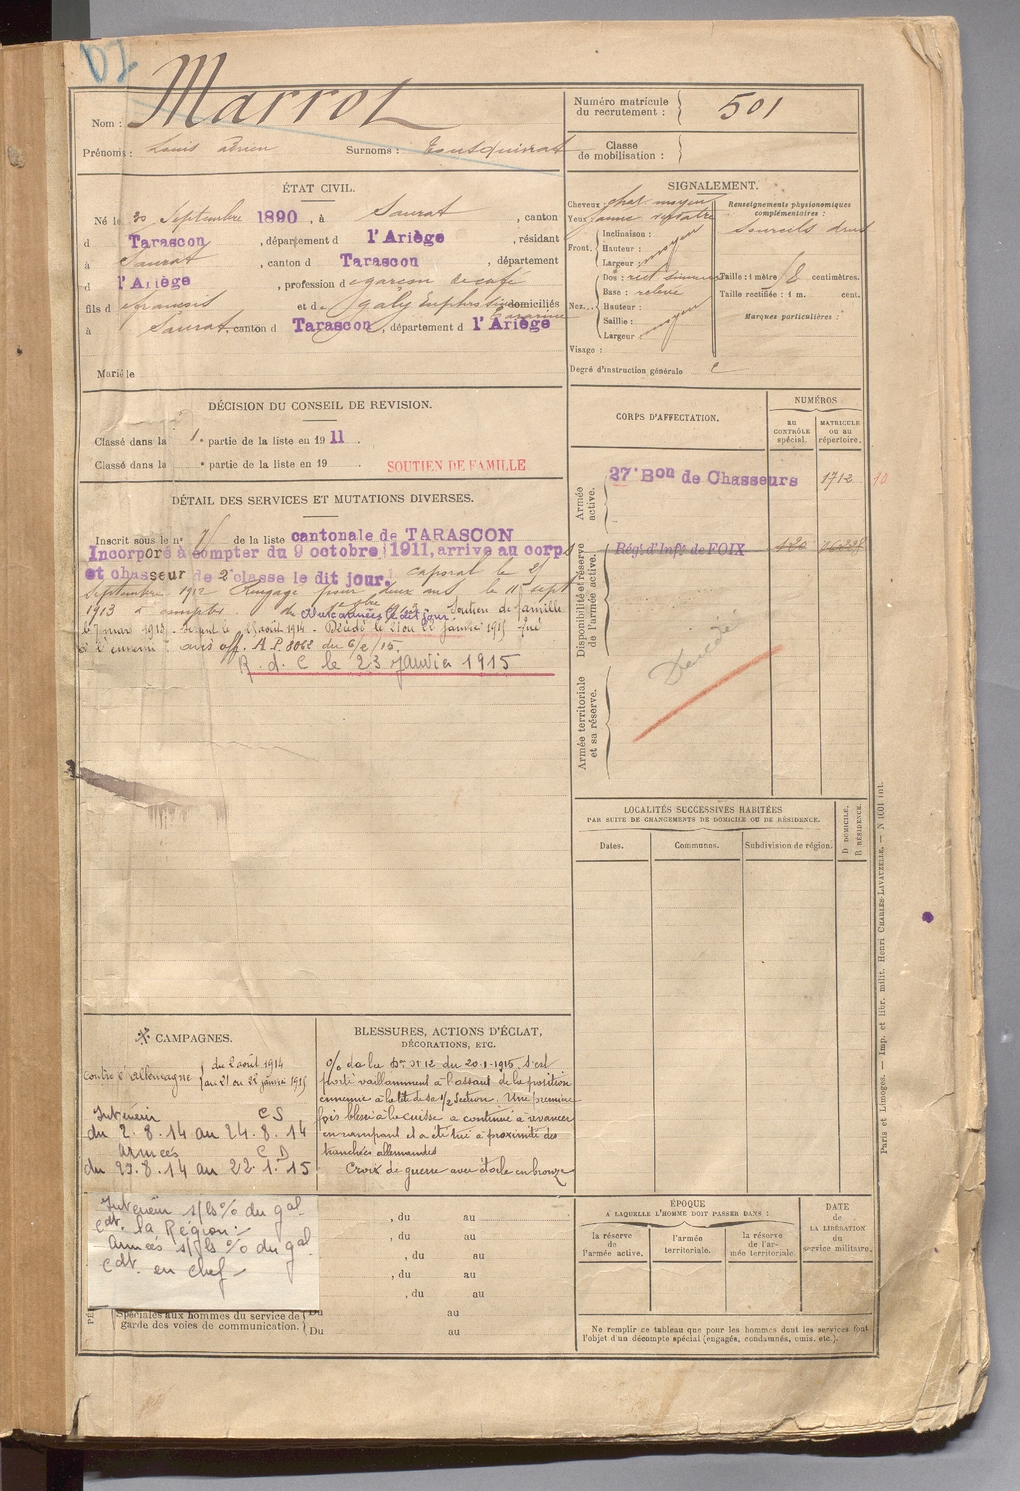 Marrot
Nom :
Prénoms : Louis Adrien Surnoms :
Numéro matricule du recrutement : 501
Classe de mobilisation :
ÉTAT CIVIL.
Né le 30 Septembre 1890, à Saurat, canton
d Tarascon, département d l'Ariège, résidant
à Saurat, canton d Tarascon, département
d l'Ariège, profession d garçon de café
fils d François et d Galy domiciliés
à Saurat, canton d Tarascon, département d l'Ariège
Marié le
SIGNALEMENT.
Cheveux chat. moyen
Yeux jaune verdâtre
Front.
Inclinaison :
Hauteur : moyen
Largeur :
Nez.
Dos : rect. sinueux
Base : relevé
Hauteur :
Saillie : moyen
Largeur :
Visage :
Degré d'instruction générale
Renseignements physionomiques complémentaires :
Sourcils drus
Taille : 1 mètre centimètres.
Taille rectifiée : 1 m. cent.
Marques particulières :
DÉCISION DU CONSEIL DE REVISION.
Classé dans la 1e partie de la liste en 1911.
Classé dans la e partie de la liste en 19 .
SOUTIEN DE FAMILLE
DÉTAIL DES SERVICES ET MUTATIONS DIVERSES.
Inscrit sous le n° de la liste cantonale de TARASCON
Incorporé à compter du 9 octobre 1911, arrive au corps
et chasseur de 2e classe le dit jour. Caporal le
Septembre 1912 Rengagé pour deux ans le 11 sept
1913 à compter du Soutien de famille
Aux armées le dit jour.
Décédé le 21 ou 22 janvier 1915 tué
à l'ennemi avis off. A.P. 8062 du 6/2/15.
R. d. C le 23 Janvier 1915
CORPS D'AFFECTATION.
NUMÉROS
au CONTRÔLE spécial.
MATRICULE ou au répertoire.
Armée active.
27e Bon de Chasseurs 1712 10
Disponibilité et réserve de l'armée active.
Régt d'Infie de FOIX
Décédé
Armée territoriale et sa réserve.
LOCALITÉS SUCCESSIVES HABITÉES
PAR SUITE DE CHANGEMENTS DE DOMICILE OU DE RÉSIDENCE.
D DOMICILE.
R RÉSIDENCE.
Dates. Communes. Subdivision de région.
CAMPAGNES.
Contre l'Allemagne du 2 août 1914
au 21 ou 22 janvier 1915
Intérieur C S
du 2.8.14 au 24.8.14
Armées C D
du 25.8.14 au 22.1.15
BLESSURES, ACTIONS D'ÉCLAT,
DÉCORATIONS, ETC.
O/o de la Don N° 12 du 20-1-1915. S'est
porté vaillamment à l'assaut de la position
ennemie à la tête de sa 1/2 Section. Une première
fois blessé à la cuisse a continué à avancer
en rampant et a été tué à proximité des
tranchées allemandes
Croix de guerre avec étoile en bronze
Intérieur s/ls % du gal
Cdt. la Région :
Armées s/ls % du gal
Cdt. en chef -
, du au
, du au
, du au
, du au
, du au
Spéciales aux hommes du service de garde des voies de communication.
Du au
Du au
ÉPOQUE
A LAQUELLE L'HOMME DOIT PASSER DANS :
la réserve de l'armée active.
l'armée territoriale.
la réserve de l'armée territoriale.
DATE de LA LIBÉRATION du service militaire.
Ne remplir ce tableau que pour les hommes dont les services font
l'objet d'un décompte spécial (engagés, condamnés, omis, etc.).
Paris et Limoges. — Imp. et libr. milit. Henri CHARLES-LAVAUZELLE. — N 1001 int.